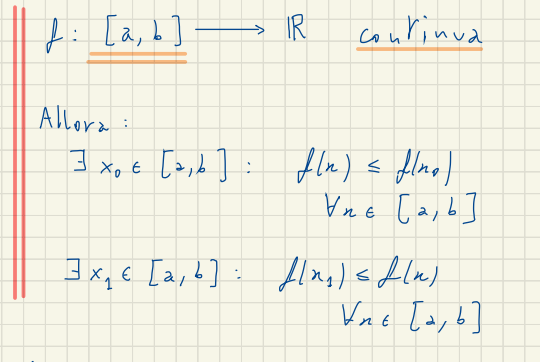 f: [a, b] ⟶ ℝ continua
Allora:
∃ x₀ ∈ [a, b] : f(x) ≤ f(x₀)
∀x ∈ [a, b]
∃ x₁ ∈ [a, b] : f(x₁) ≤ f(x)
∀x ∈ [a, b]